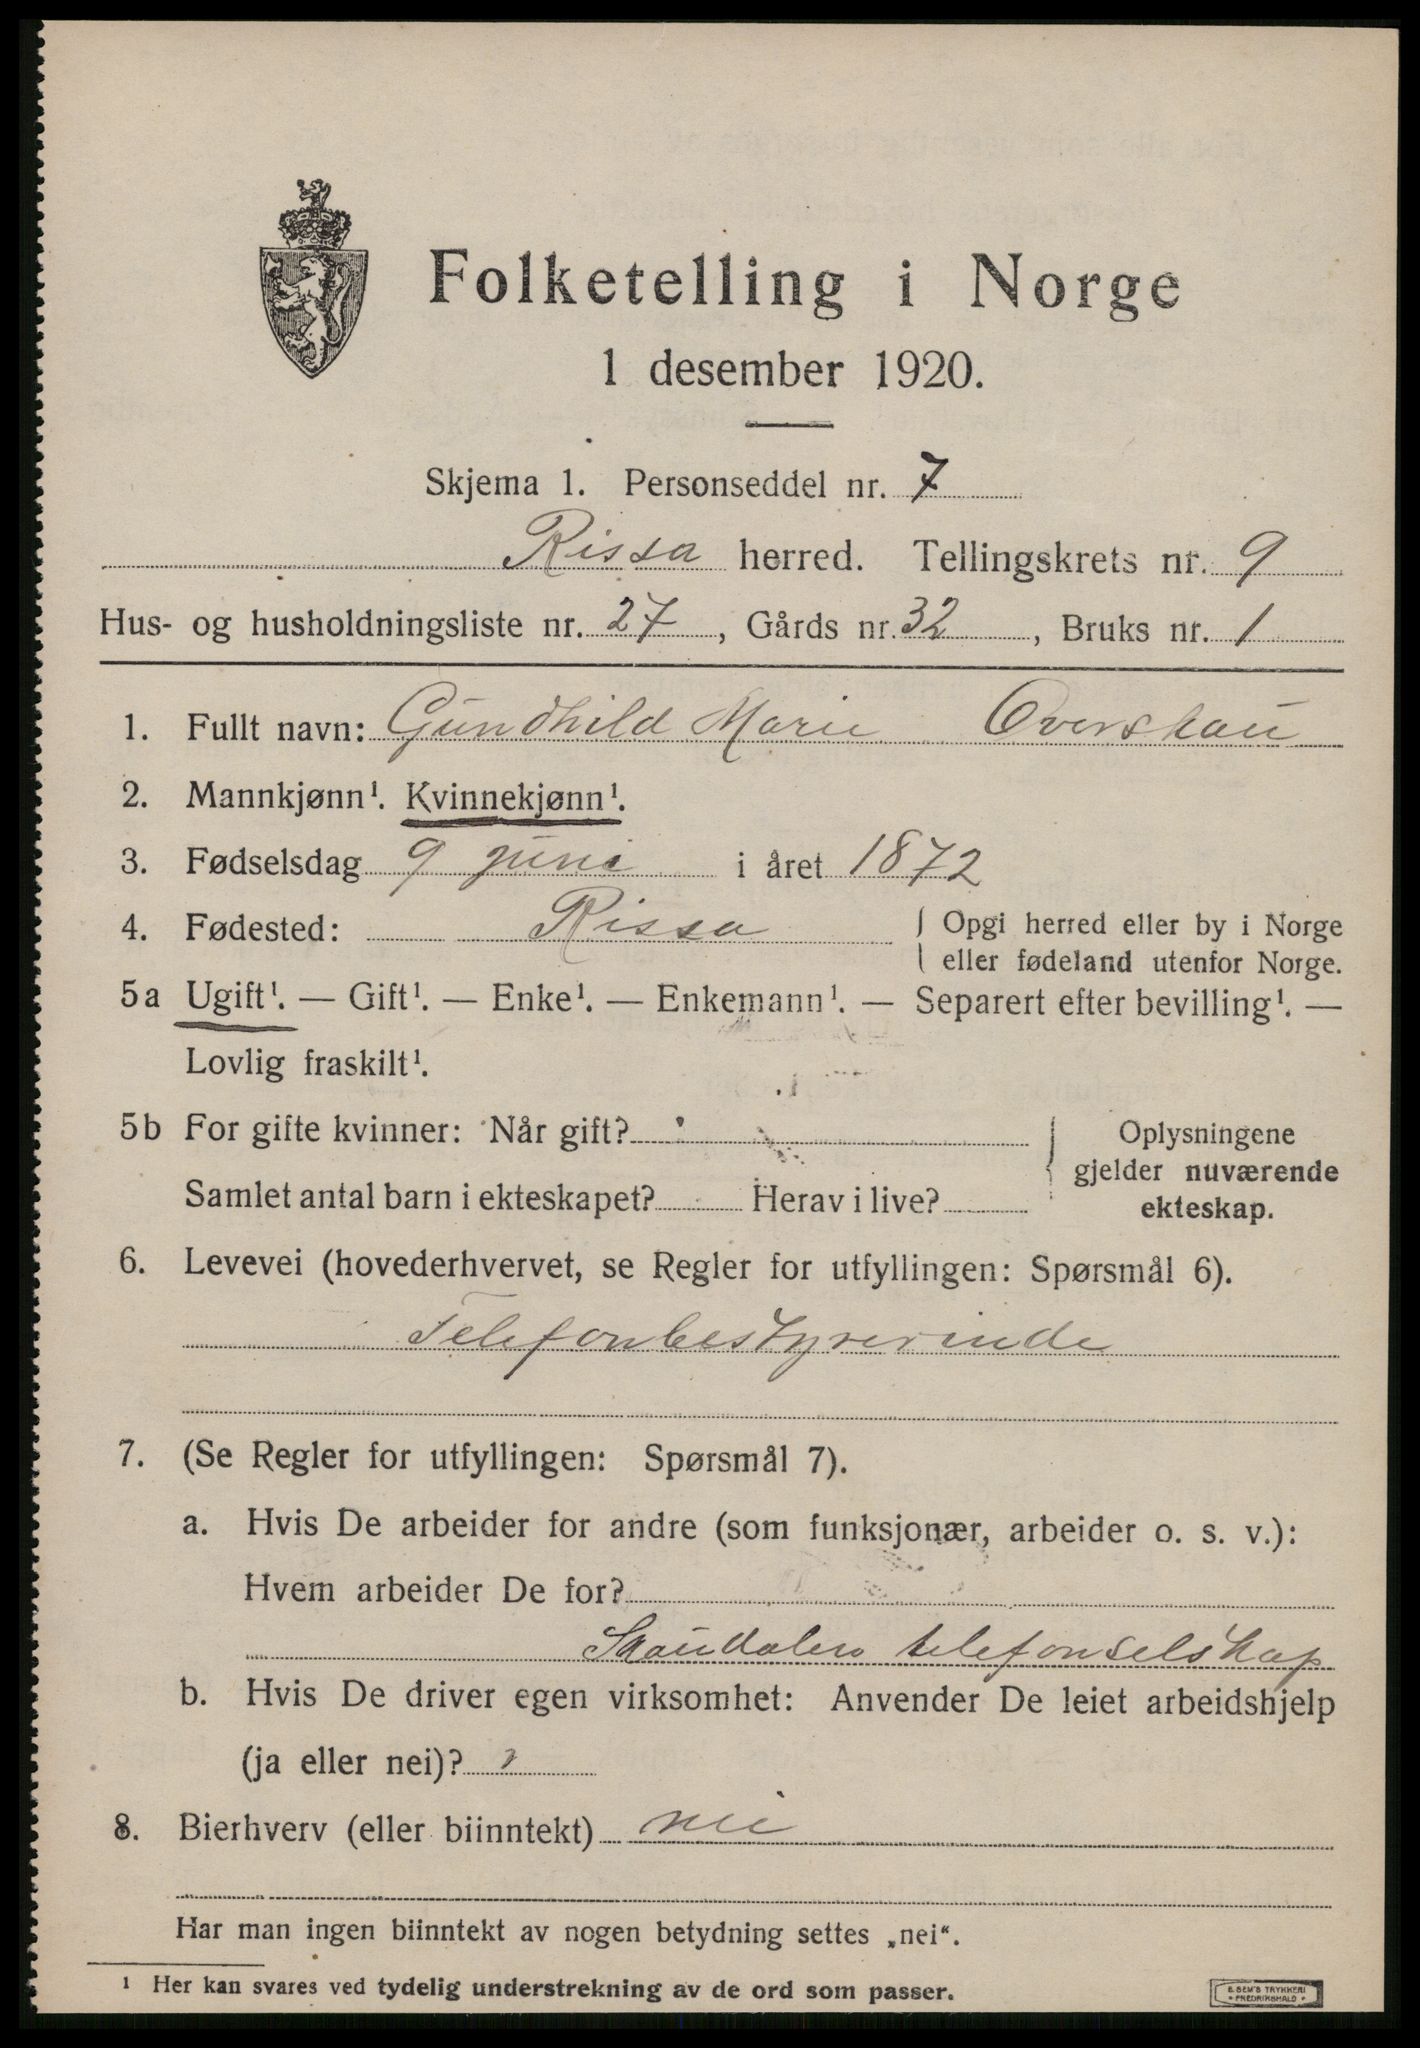 Folketelling i Norge
1 desember 1920.
Skjema 1. Personseddel nr. 7
Rissa herred. Tellingskrets nr. 9
Hus- og husholdningsliste nr. 27, Gårds nr. 32, Bruks nr. 1
1. Fullt navn: Gundhild Marie Overskau
2. Mannkjønn¹. Kvinnekjønn¹.
3. Fødselsdag 9 juni i året 1872
4. Fødested: Rissa { Opgi herred eller by i Norge
eller fødeland utenfor Norge.
5a Ugift¹. — Gift¹. — Enke¹. — Enkemann¹. — Separert efter bevilling¹. —
Lovlig fraskilt¹.
5b For gifte kvinner: Når gift?
Samlet antal barn i ekteskapet? Herav i live?
{ Oplysningene
gjelder nuværende
ekteskap.
6. Levevei (hovederhvervet, se Regler for utfyllingen: Spørsmål 6).
Telefonbestyrerinde
7. (Se Regler for utfyllingen: Spørsmål 7).
a. Hvis De arbeider for andre (som funksjonær, arbeider o. s. v.):
Hvem arbeider De for?
Skaudalens telefonselskap
b. Hvis De driver egen virksomhet: Anvender De leiet arbeidshjelp
(ja eller nei)?
8. Bierhverv (eller biinntekt) nei
Har man ingen biinntekt av nogen betydning settes „nei“.
¹ Her kan svares ved tydelig understrekning av de ord som passer.
E. SEM'S TRYKKERI
• FREDRIKSHALD •